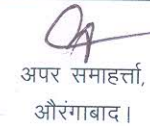 अपर समाहर्त्ता,
औरंगाबाद।